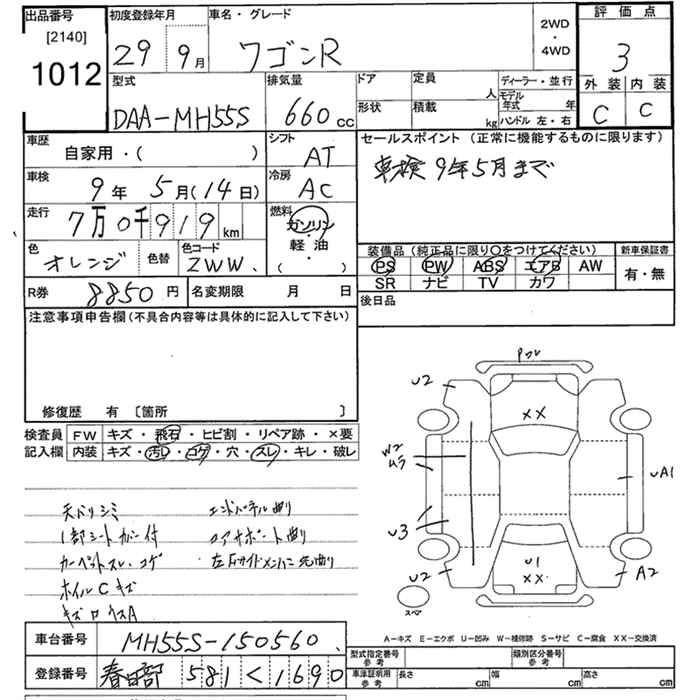 出品番号
[2140]
1012
初度登録年月
29 9月
車名・グレード
ワゴンR
2WD
・
4WD
評価点
3
外装 内装
C C
型式
DAA-MH55S
排気量
660 cc
ドア
定員
人
形状
積載
kg
ディーラー・並行
モデル年式 年
ハンドル 左・右
車歴
自家用・( )
シフト
AT
セールスポイント（正常に機能するものに限ります）
車検9年5月まで
車検
9年 5月(14日)
冷房
AC
走行
7万0千919km
燃料
ガソリン
・
軽油
( )
色
オレンジ
色替
色コード
ZWW.
装備品（純正品に限り○をつけてください）
PS PW ABS エアB AW
SR ナビ TV カワ
新車保証書
有・無
R券
8850円
名変期限 月 日
後日品
注意事項申告欄(不具合内容等は具体的に記入して下さい)
修復歴 有 〔箇所 〕
検査員記入欄
FW キズ・飛石・ヒビ割・リペア跡・×要
内装 キズ・汚レ・コゲ・穴・スレ・キレ・破レ
天バリシミ
1部シートカバー付
カーペットスレ・コゲ
ホイルCキズ
エンドパネル曲り
コアサポート曲り
左Fサイドメンバー先曲り
U2
××
W2
ムラ
UA1
U3
U1
××
U2
A2
スペア
A－キズ E－エクボ U－凹み W－補修跡 S－サビ C－腐食 XX－交換済
車台番号
MH55S-150560.
登録番号
春日部 581 く 1690
型式指定番号
参考
類別区分番号
参考
車庫証明用
参考
長さ cm
幅 cm
高さ cm